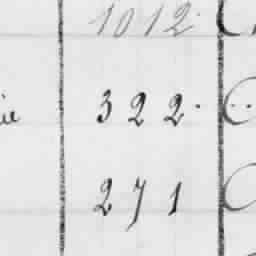 1012.
322.
271